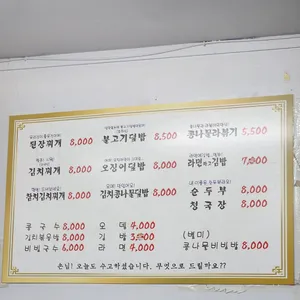 된장찌개 8,000
불고기덮밥 8,500
콩나물라볶기 5,500
김치찌개 8,000
오징어덮밥 8,500
라면과김밥 7,000
참치김치찌개 8,000
김치콩나물덮밥 8,000
순두부 8,000
청국장 8,000
콩국수 8,000
오뎅 4,000
김치볶음밥 8,000
김밥
(베미)
비빔국수 6,000
라면 4,000
콩나물비빔밥 8,000
손님! 오늘도 수고하셨습니다. 무엇으로 드릴까요??